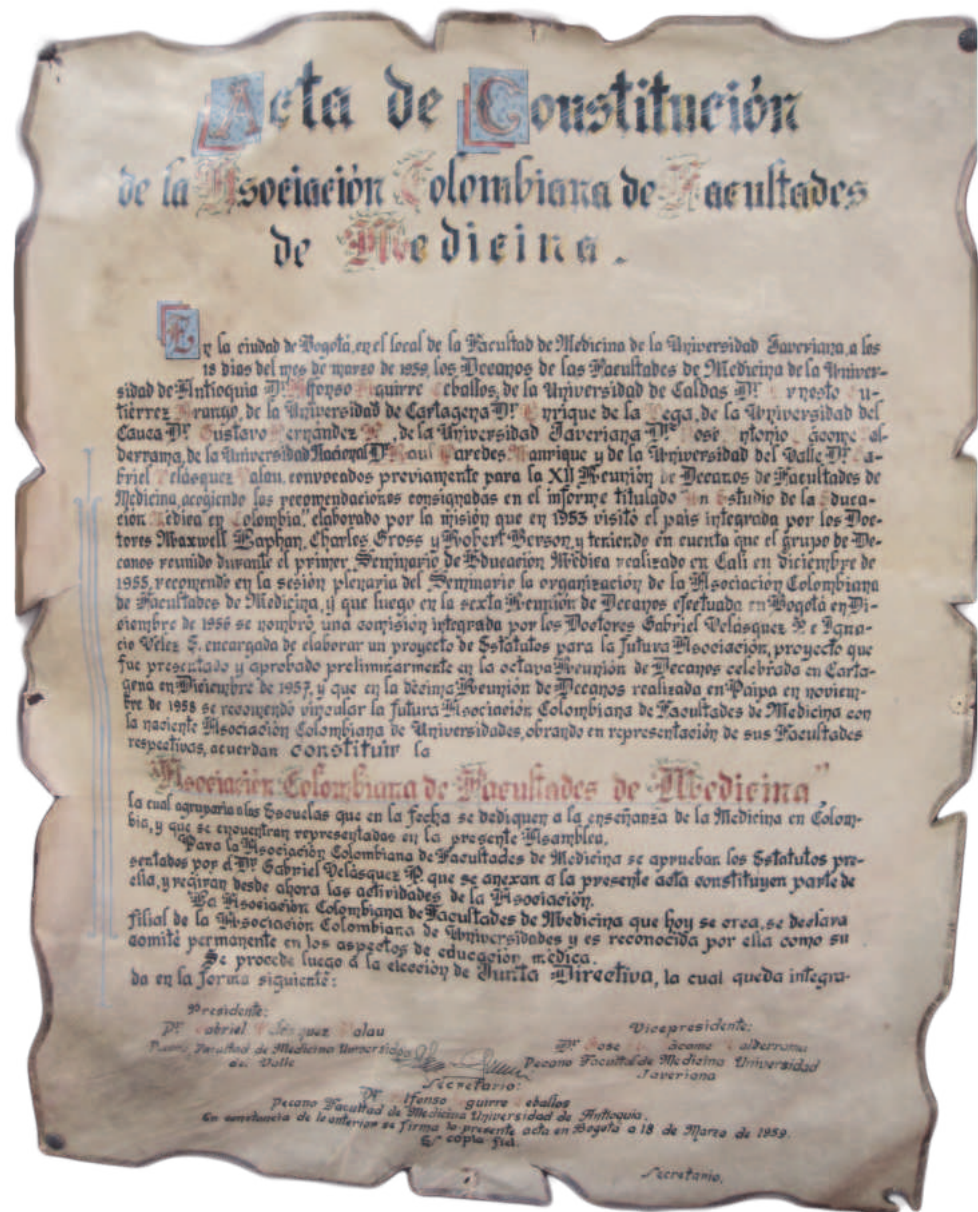 Acta de Constitución
de la Asociación Colombiana de Facultades
de Medicina.
En la ciudad de Bogotá, en el local de la Facultad de Medicina de la Universidad Javeriana, a los
18 dias del mes de marzo de 1959, los Decanos de las Facultades de Medicina de la Univer-
sidad de Antioquia Dr. Alfonso Aguirre Ceballos, de la Universidad de Caldas Dr. Ernesto Gu-
tiérrez Arango, de la Universidad de Cartagena Dr. Enrique de la Vega, de la Universidad del
Cauca Dr. Gustavo Hernández, de la Universidad Javeriana Dr. José Antonio Jácome Val-
derrama, de la Universidad Nacional Dr. Raul Paredes Manrique y de la Universidad del Valle Dr. Ga-
briel Velásquez Palau, convocados previamente para la XII Reunión de Decanos de Facultades de
Medicina, acogiendo las recomendaciones consignadas en el informe titulado "Un Estudio de la Educa-
ción Médica en Colombia," elaborado por la misión que en 1953 visitó el pais integrada por los Doc-
tores Maxwell Laphan, Charles Gross y Robert Berson, y teniendo en cuenta que el grupo de De-
canos reunido durante el primer Seminario de Educación Médica realizado en Cali en diciembre de
1955, recomendó en la sesión plenaria del Seminario la organización de la Asociación Colombiana
de Facultades de Medicina, y que luego en la sexta Reunión de Decanos efectuada en Bogotá en Di-
ciembre de 1956 se nombró, una comisión integrada por los Doctores Gabriel Velásquez P. e Igna-
cio Vélez E. encargada de elaborar un proyecto de Estatutos para la futura Asociación, proyecto que
fue presentado y aprobado preliminarmente en la octava Reunión de Decanos celebrada en Carta-
gena en Diciembre de 1957, y que en la décima Reunión de Decanos realizada en Paipa en noviem-
bre de 1958 se recomendó vincular la futura Asociación Colombiana de Facultades de Medicina con
la naciente Asociación Colombiana de Universidades, obrando en representación de sus Facultades
respectivas, acuerdan constituir la
"Asociación Colombiana de Facultades de Medicina"
la cual agruparia a las Escuelas que en la fecha se dediquen a la enseñanza de la Medicina en Colom-
bia, y que se encuentran representadas en la presente Asamblea.
Para la Asociación Colombiana de Facultades de Medicina se aprueban los Estatutos pre-
sentados por el Dr. Gabriel Velásquez P. que se anexan a la presente acta constituyen parte de
ella, y regiran desde ahora las actividades de la Asociación.
La Asociación Colombiana de Facultades de Medicina que hoy se crea, se declara
filial de la Asociación Colombiana de Universidades y es reconocida por ella como su
comité permanente en los aspectos de educación médica.
Se procede luego a la elección de Junta Directiva, la cual queda integra-
da en la forma siguiente:
Presidente:
Dr. Gabriel Velásquez Palau
Decano Facultad de Medicina Universidad
del Valle
Vicepresidente:
Dr. José Jácome Valderrama
Decano Facultad de Medicina Universidad
Javeriana
Secretario:
Dr. Alfonso Aguirre Ceballos
Decano Facultad de Medicina Universidad de Antioquia.
En constancia de lo anterior se firma la presente acta en Bogotá a 18 de Marzo de 1959.
Es copia fiel.
Secretario.